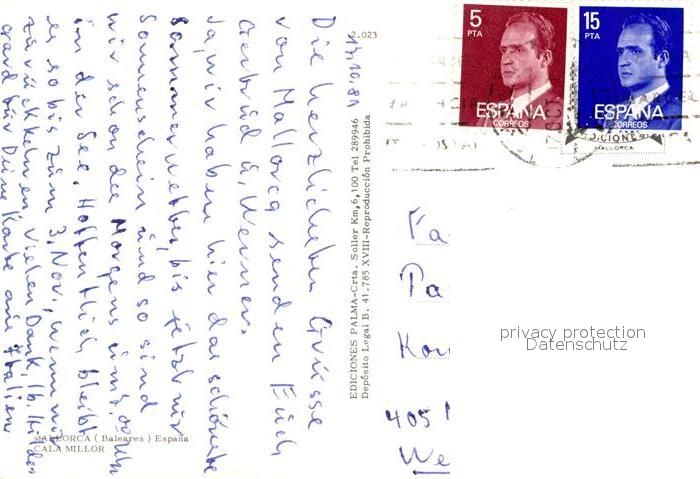 13.10.81
Die herzlichsten Grüsse
von Mallorca senden Euch
Gertrud u. Werner.
Ja, wir haben hier das schönste
Sommerwetter, bis jetzt nur
Sonnenschein und so sind
wir schon des Morgens
in der See. Hoffentlich bleibt
es so bis zum 3. Nov., wenn wir
zurückkehren. Vielen Dank, lb.
grad für Deine Karte aus Italien
2.023
EDICIONES PALMA-Crta. Soller Km,6,100 Tel 289946
Depósito Legal B. 41.785 XVIII-Reproducción Prohibida
MALLORCA ( Baleares ) España
CALA MILLOR
5
PTA
ESPAÑA
CORREOS
15
PTA
ESPAÑA
CORREOS
EDICIONES
MALLORCA
Fa
Pa
Kon
405
We
privacy protection
Datenschutz